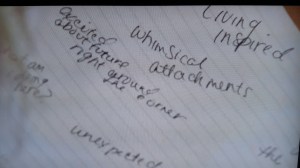 Living
inspired
whimsical
attachments
excited
about future
right around
the corner
unexpected
the